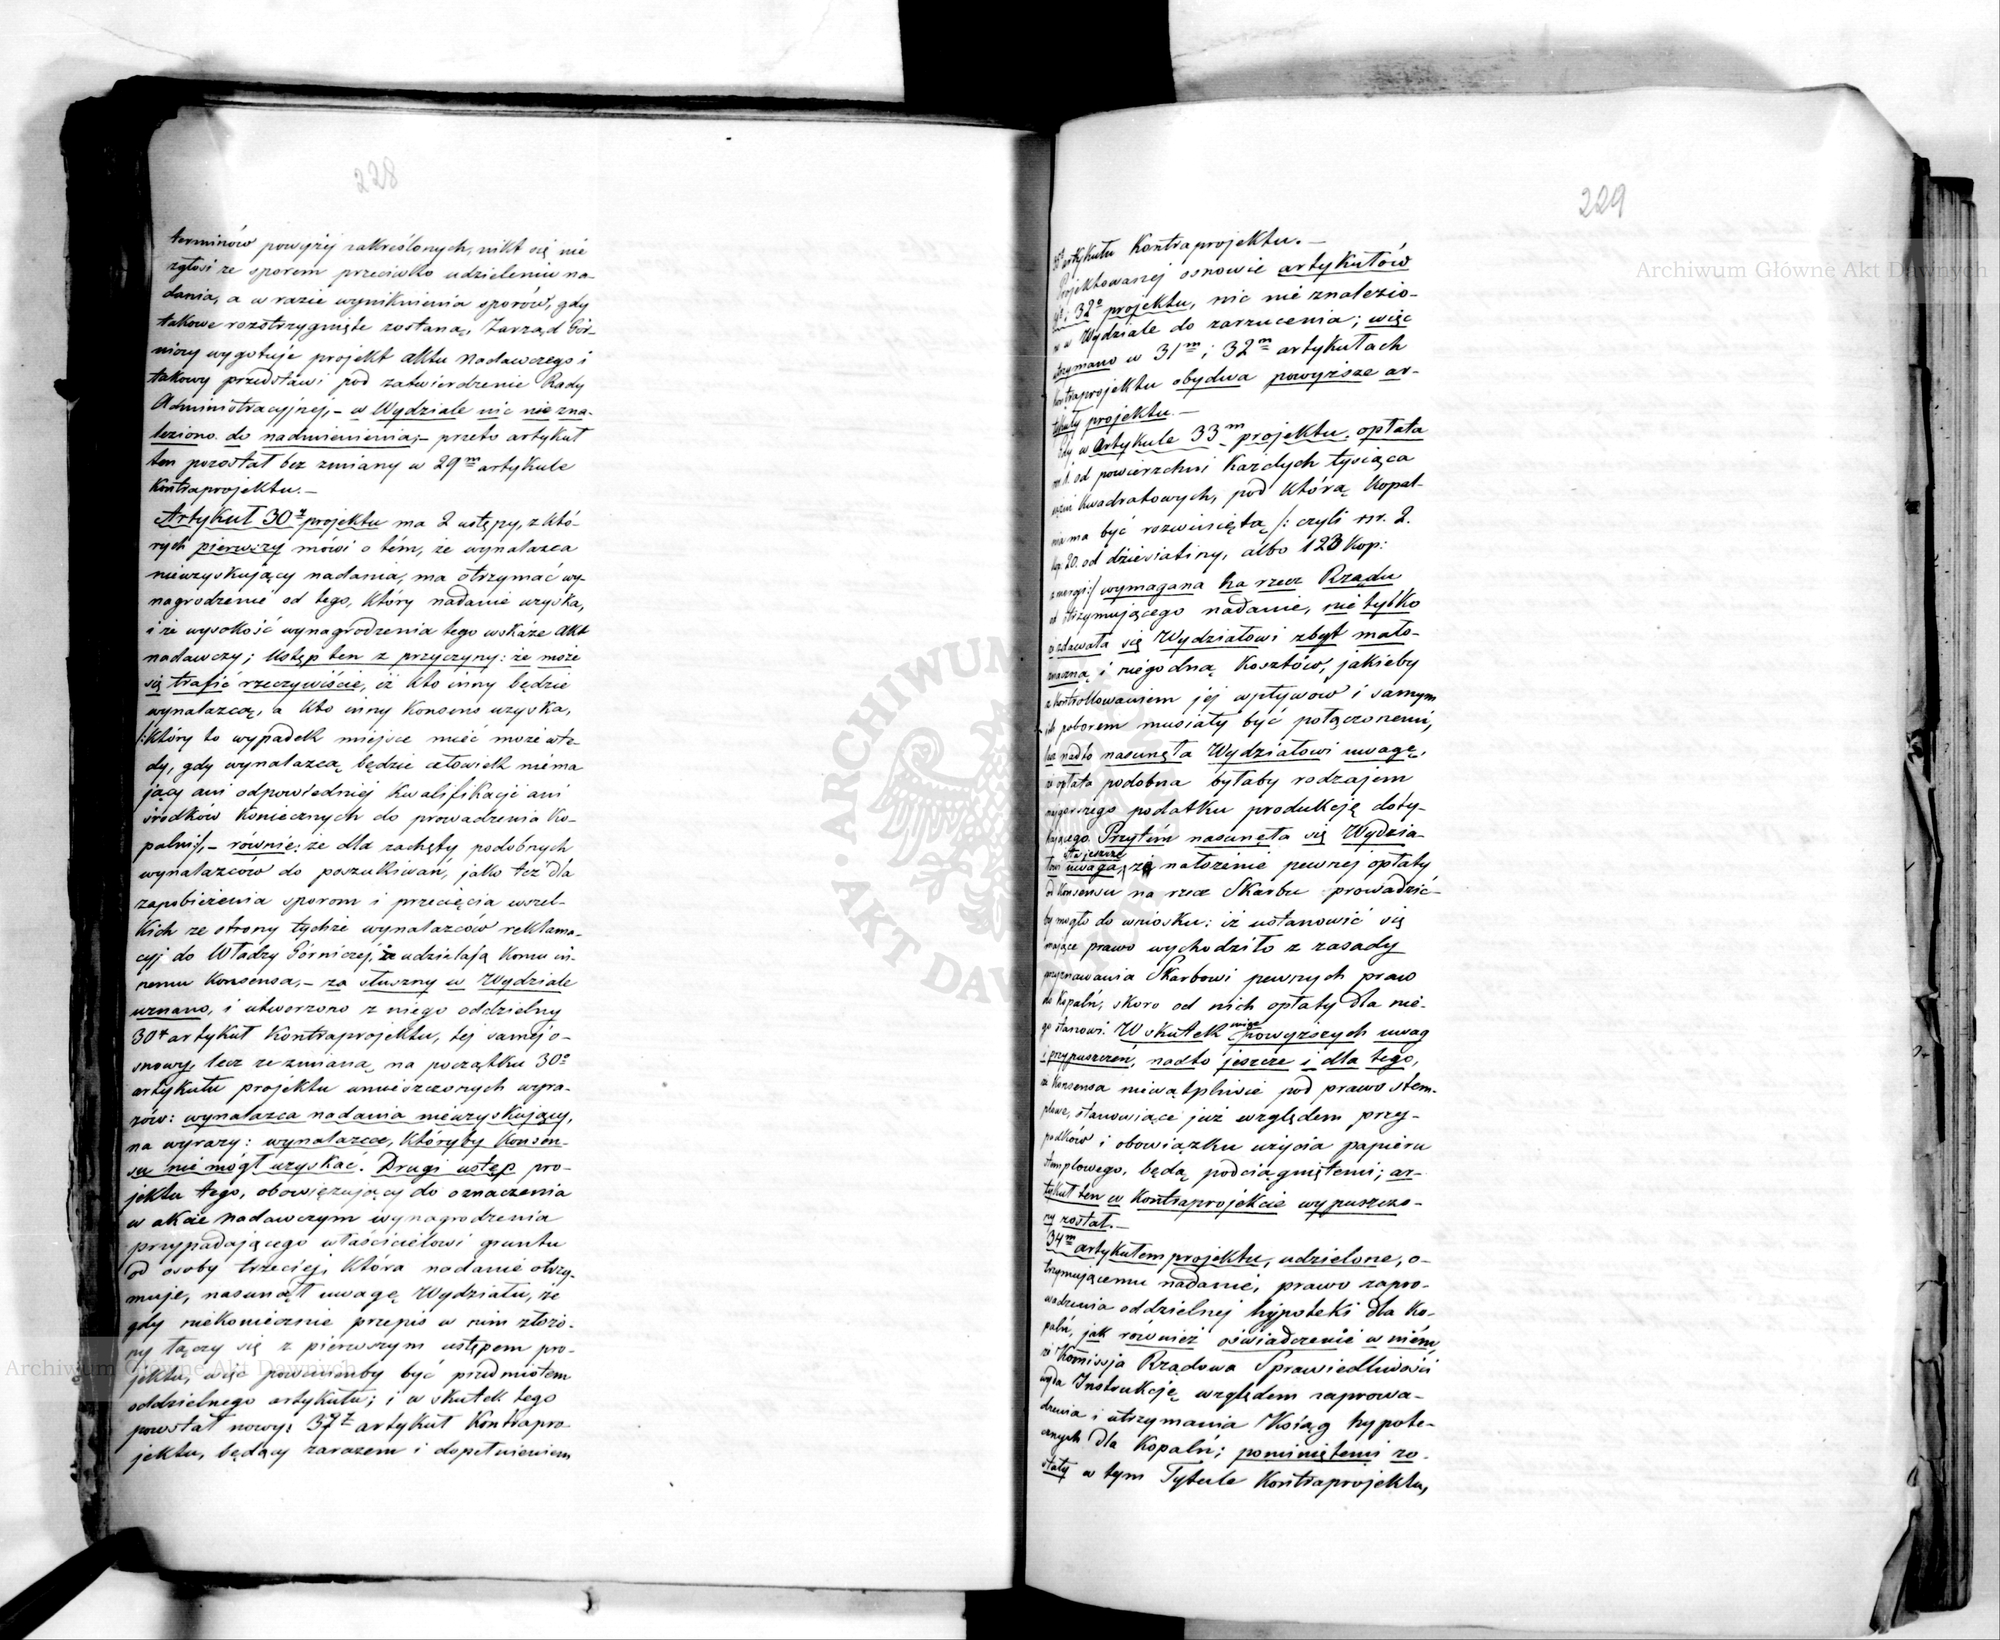 228
terminów powyżéj zakreślonych, nikt się nie
zgłosi ze sporem przeciwko udzieleniu na-
dania, a w razie wyniknienia sporów, gdy
takowe rozstrzygnięte zostaną, Zarząd Gór-
niczy wygotuje projekt aktu nadawczego i
takowy przedstawi pod zatwierdzenie Rady
Administracyjnej, – w Wydziale nic nie zna-
leziono do nadmienienia; – przeto artykuł
ten pozostał bez zmiany w 29m artykule
Kontraprojektu. –
Artykuł 30y projektu ma 2 ustępy, z któ-
rych pierwszy mówi o tém, że wynalazca
nieuzyskujący nadania, ma otrzymać wy-
nagrodzenie od tego, który nadanie uzyska,
i że wysokość wynagrodzenia tego wskaże akt
nadawczy; Ustęp ten z przyczyny: że może
się trafić rzeczywiście, iż kto inny będzie
wynalazcą, a kto inny Konsens uzyska,
/: Który to wypadek miejsce mieć może wte-
dy, gdy wynalazcą będzie człowiek niema
jący ani odpowiedniej kwalifikacji ani
środków koniecznych do prowadzenia Ko-
palni:/, – równie: że dla zachęty podobnych
wynalazców do poszukiwań, jako też dla
zapobieżenia sporom i przecięcia wszel-
kich ze strony tychże wynalazców reklama-
cyj do Władzy Górniczéj, iż udzielają komu in-
nemu Konsensa, – za słuszny w Wydziale
uznano, i utworzono z niego oddzielny
30y artykuł Kontraprojektu, téj saméj o-
snowy, lecz ze zmianą, na początku 30o
artykułu projektu umieszczonych wyra-
zów: wynalazca nadania nieuzyskujący,
na wyrazy: wynalazca, któryby Konsen-
su nie mógł uzyskać. Drugi ustęp pro-
jektu tego, obowiązujący do oznaczenia
w akcie nadawczym wynagrodzenia
przypadającego właścicielowi gruntu
od osoby trzeciej, która nadanie otrzy-
muje, nasunął uwagę Wydziału, że
gdy niekoniecznie przepis w nim złożo-
ny łączy się z pierwszym ustępem pro-
jektu, więc powinienby być przedmiotem
oddzielnego artykułu; i w skutek tego
powstał nowy: 37y artykuł Kontrapro-
jektu, będący zarazem i dopełnieniem
229
artykułu Kontraprojektu. –
Projektowanej osnowie artykułów
i 32o projektu, nic nie znalezio-
w Wydziale do zarzucenia; więc
utrzymano w 31m i 32m artykułach
Kontraprojektu obydwa powyższe ar-
tykuły projektu. –
Gdy w Artykule 33m projektu, opłata
od powierzchni każdych tysiąca
sążni kwadratowych, pod którą Kopal-
nia ma być rozwiniętą /: czyli rsr. 2.
kop. 20. od dziesiatiny, albo 123 kop:
z morga:/ wymagana na rzecz Rządu
od otrzymującego nadanie, nie tylko
że zdawała się Wydziałowi zbyt mało-
znaczną i niegodną Kosztów, jakieby
z kontrollowaniem jéj wpływów i samym
ich poborem musiały być połączonemi,
lecz nadto nasunęła Wydziałowi uwagę,
że opłata podobna byłaby rodzajem
najgorszego podatku produkcję doty-
kającego. Przytém nasunęła się Wydzia-
łowi uwaga, że nałożenie pewnej opłaty
od Konsensu na rzecz Skarbu prowadzić-
by mogło do wniosku: iż ustanowić się
mające prawo wychodziło z zasady
przyznawania Skarbowi pewnych praw
do Kopalń, skoro od nich opłaty dla nie-
go stanowi. W skutek więc powyższych uwag
i przypuszczeń, nadto jeszcze i dla tego,
że Konsensa niewątpliwie pod prawo stem-
plowe, stanowiące już względem przy-
padków i obowiązku użycia papieru
stemplowego, będą podciągniętemi; ar-
tykuł ten w Kontraprojekcie wypuszczo-
ny został. –
34m artykułem projektu, udzielone, o-
trzymującemu nadanie, prawo zapro-
wadzenia oddzielnej hypoteki dla Ko-
palń, jak również oświadczenie w niém,
że Komissja Rządowa Sprawiedliwości
wyda Instrukcję względem zaprowa-
dzenia i utrzymania Ksiąg hypote-
cznych dla Kopalń; pominiętemi zo-
stały w tym Tytule Kontraprojektu,
Archiwum Główne Akt Dawnych
Archiwum Główne Akt Dawnych